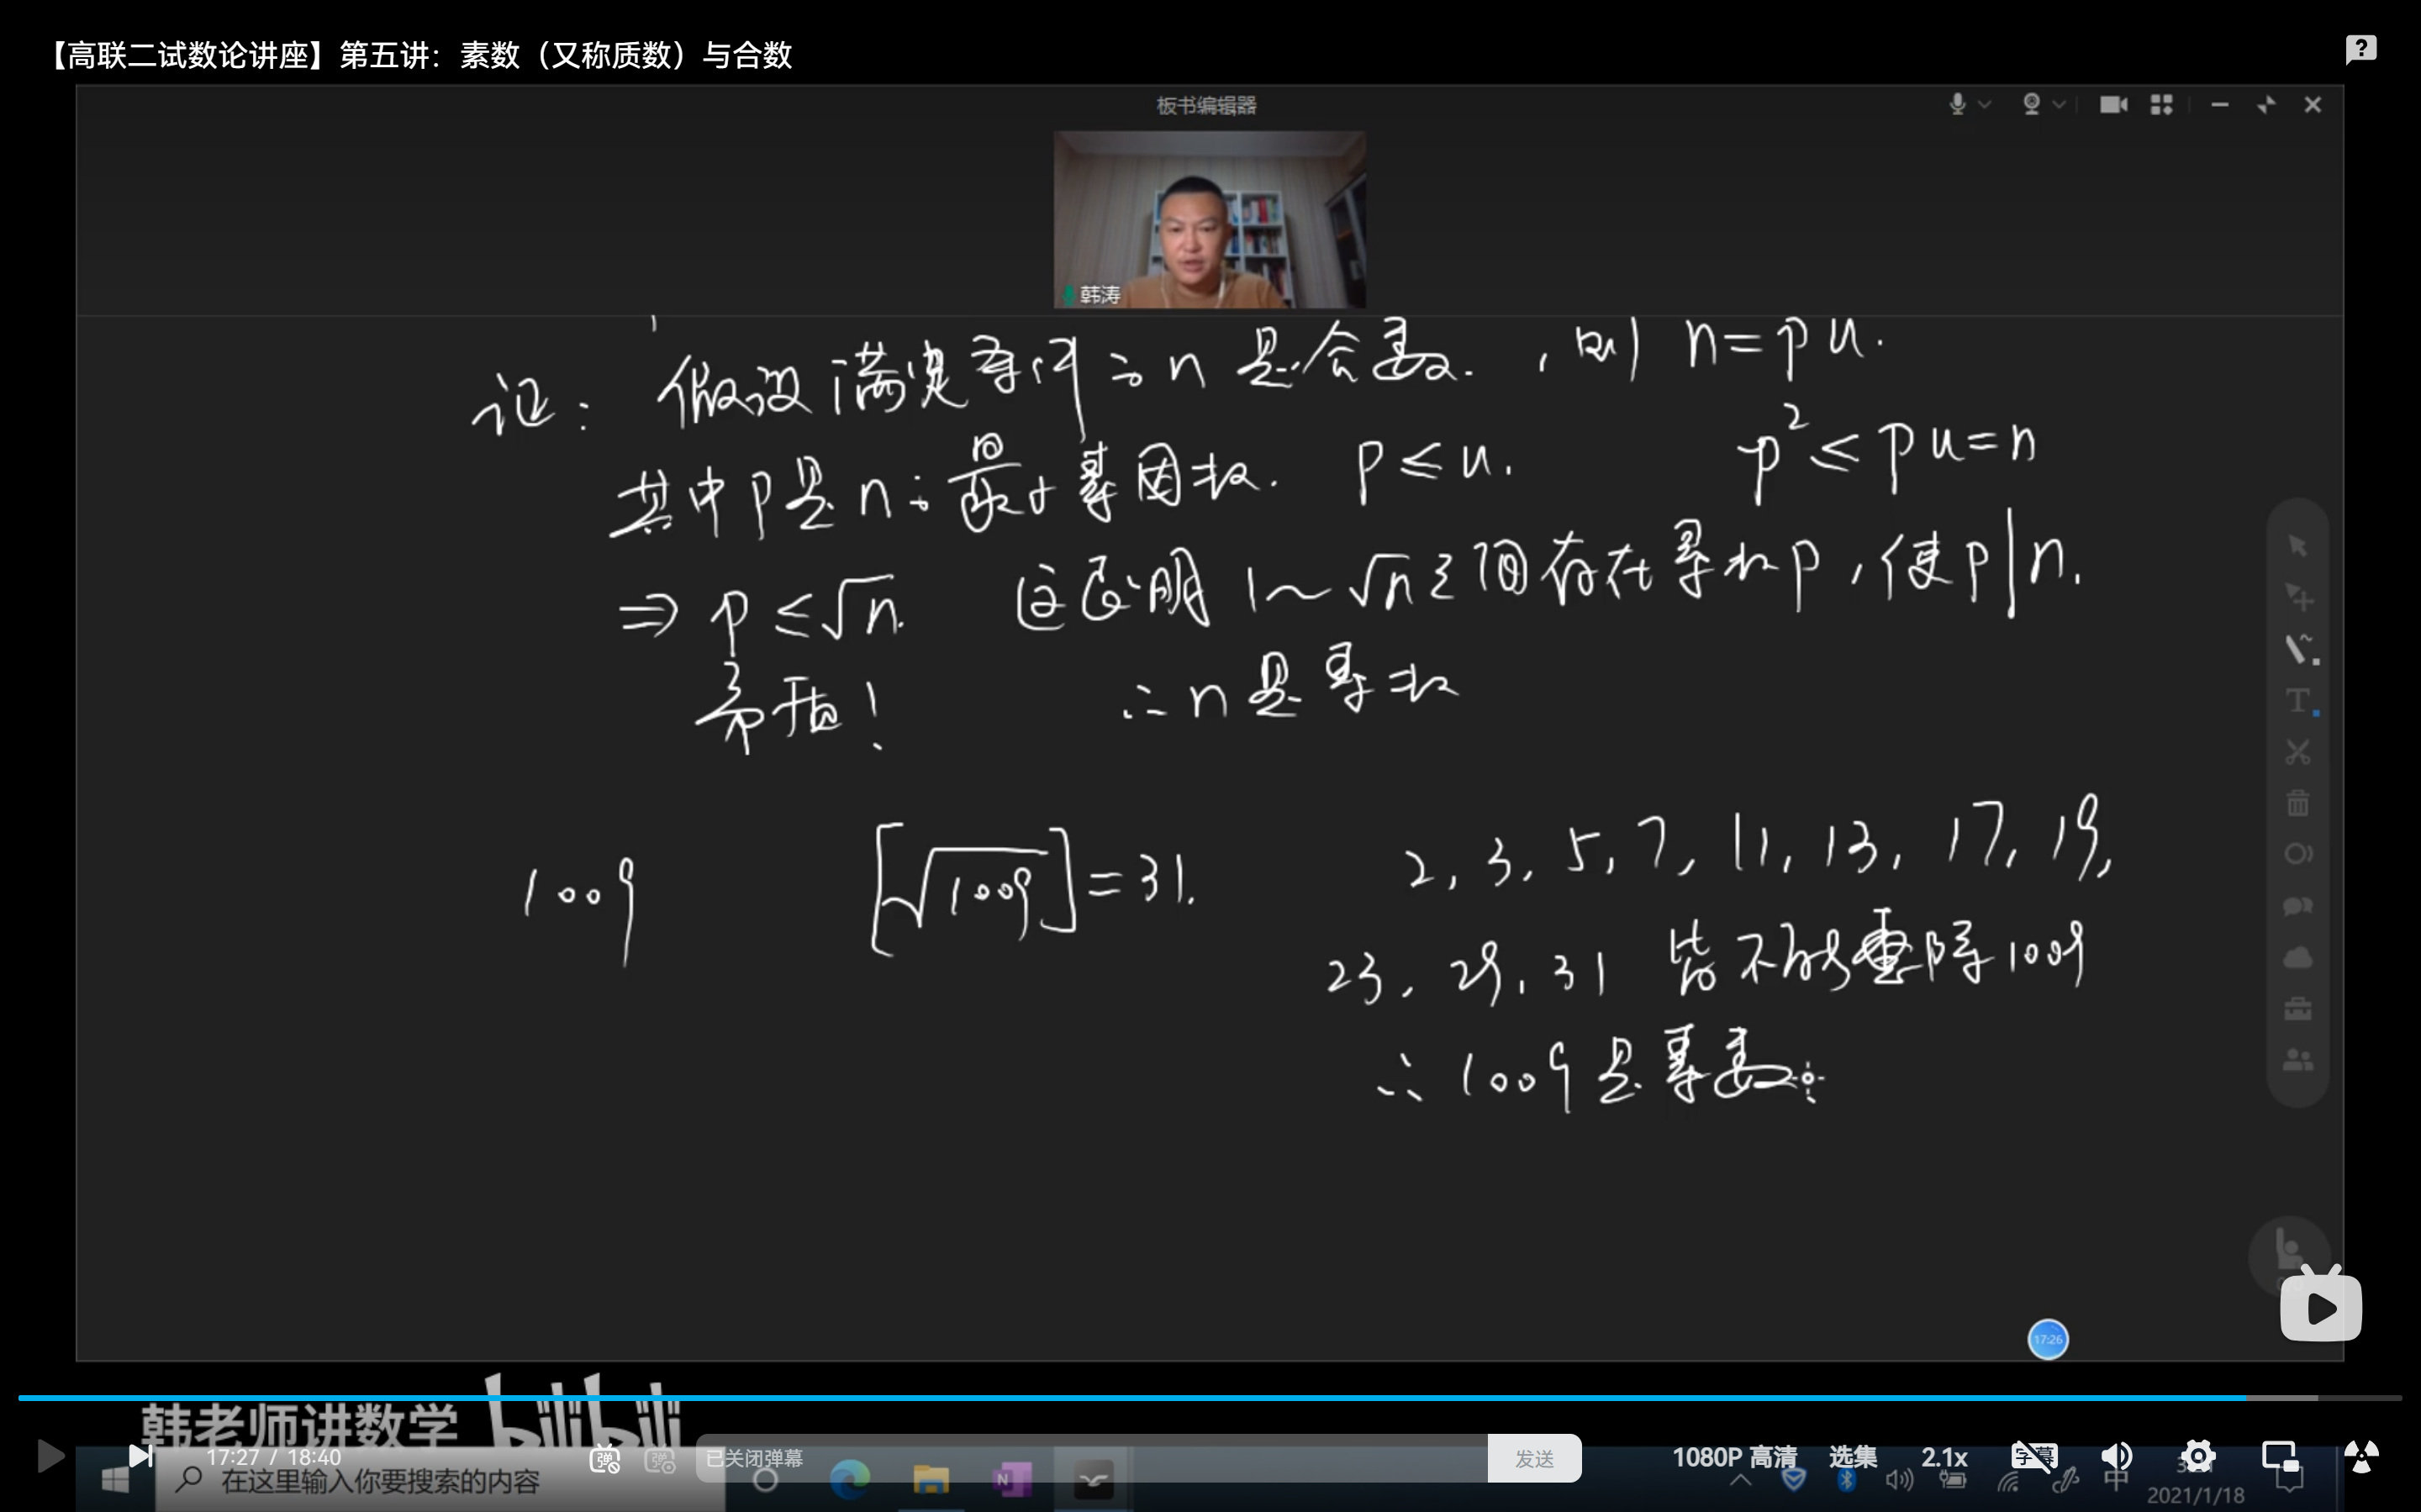 【高联二试数论讲座】第五讲：素数（又称质数）与合数
板书编辑器
韩涛
证： 假设满足条件之n是合数. ，则 n=pu.
其中p是n之最小素因数. p≤u. p²≤pu=n
⇒ p≤√n. 这说明 1～√n之间存在素数p，使p|n.
矛盾！ ∴n是素数
1009 [√1009]=31. 2, 3, 5, 7, 11, 13, 17, 19,
23, 29, 31 皆不能整除1009
∴ 1009是素数
17:26
韩老师讲数学 bilibili
17:27 / 18:40 已关闭弹幕 发送 1080P 高清 选集 2.1x 字幕
在这里输入你要搜索的内容 中
2021/1/18